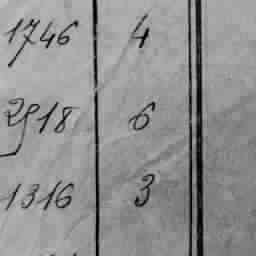 1746 4
2918 6
1316 3